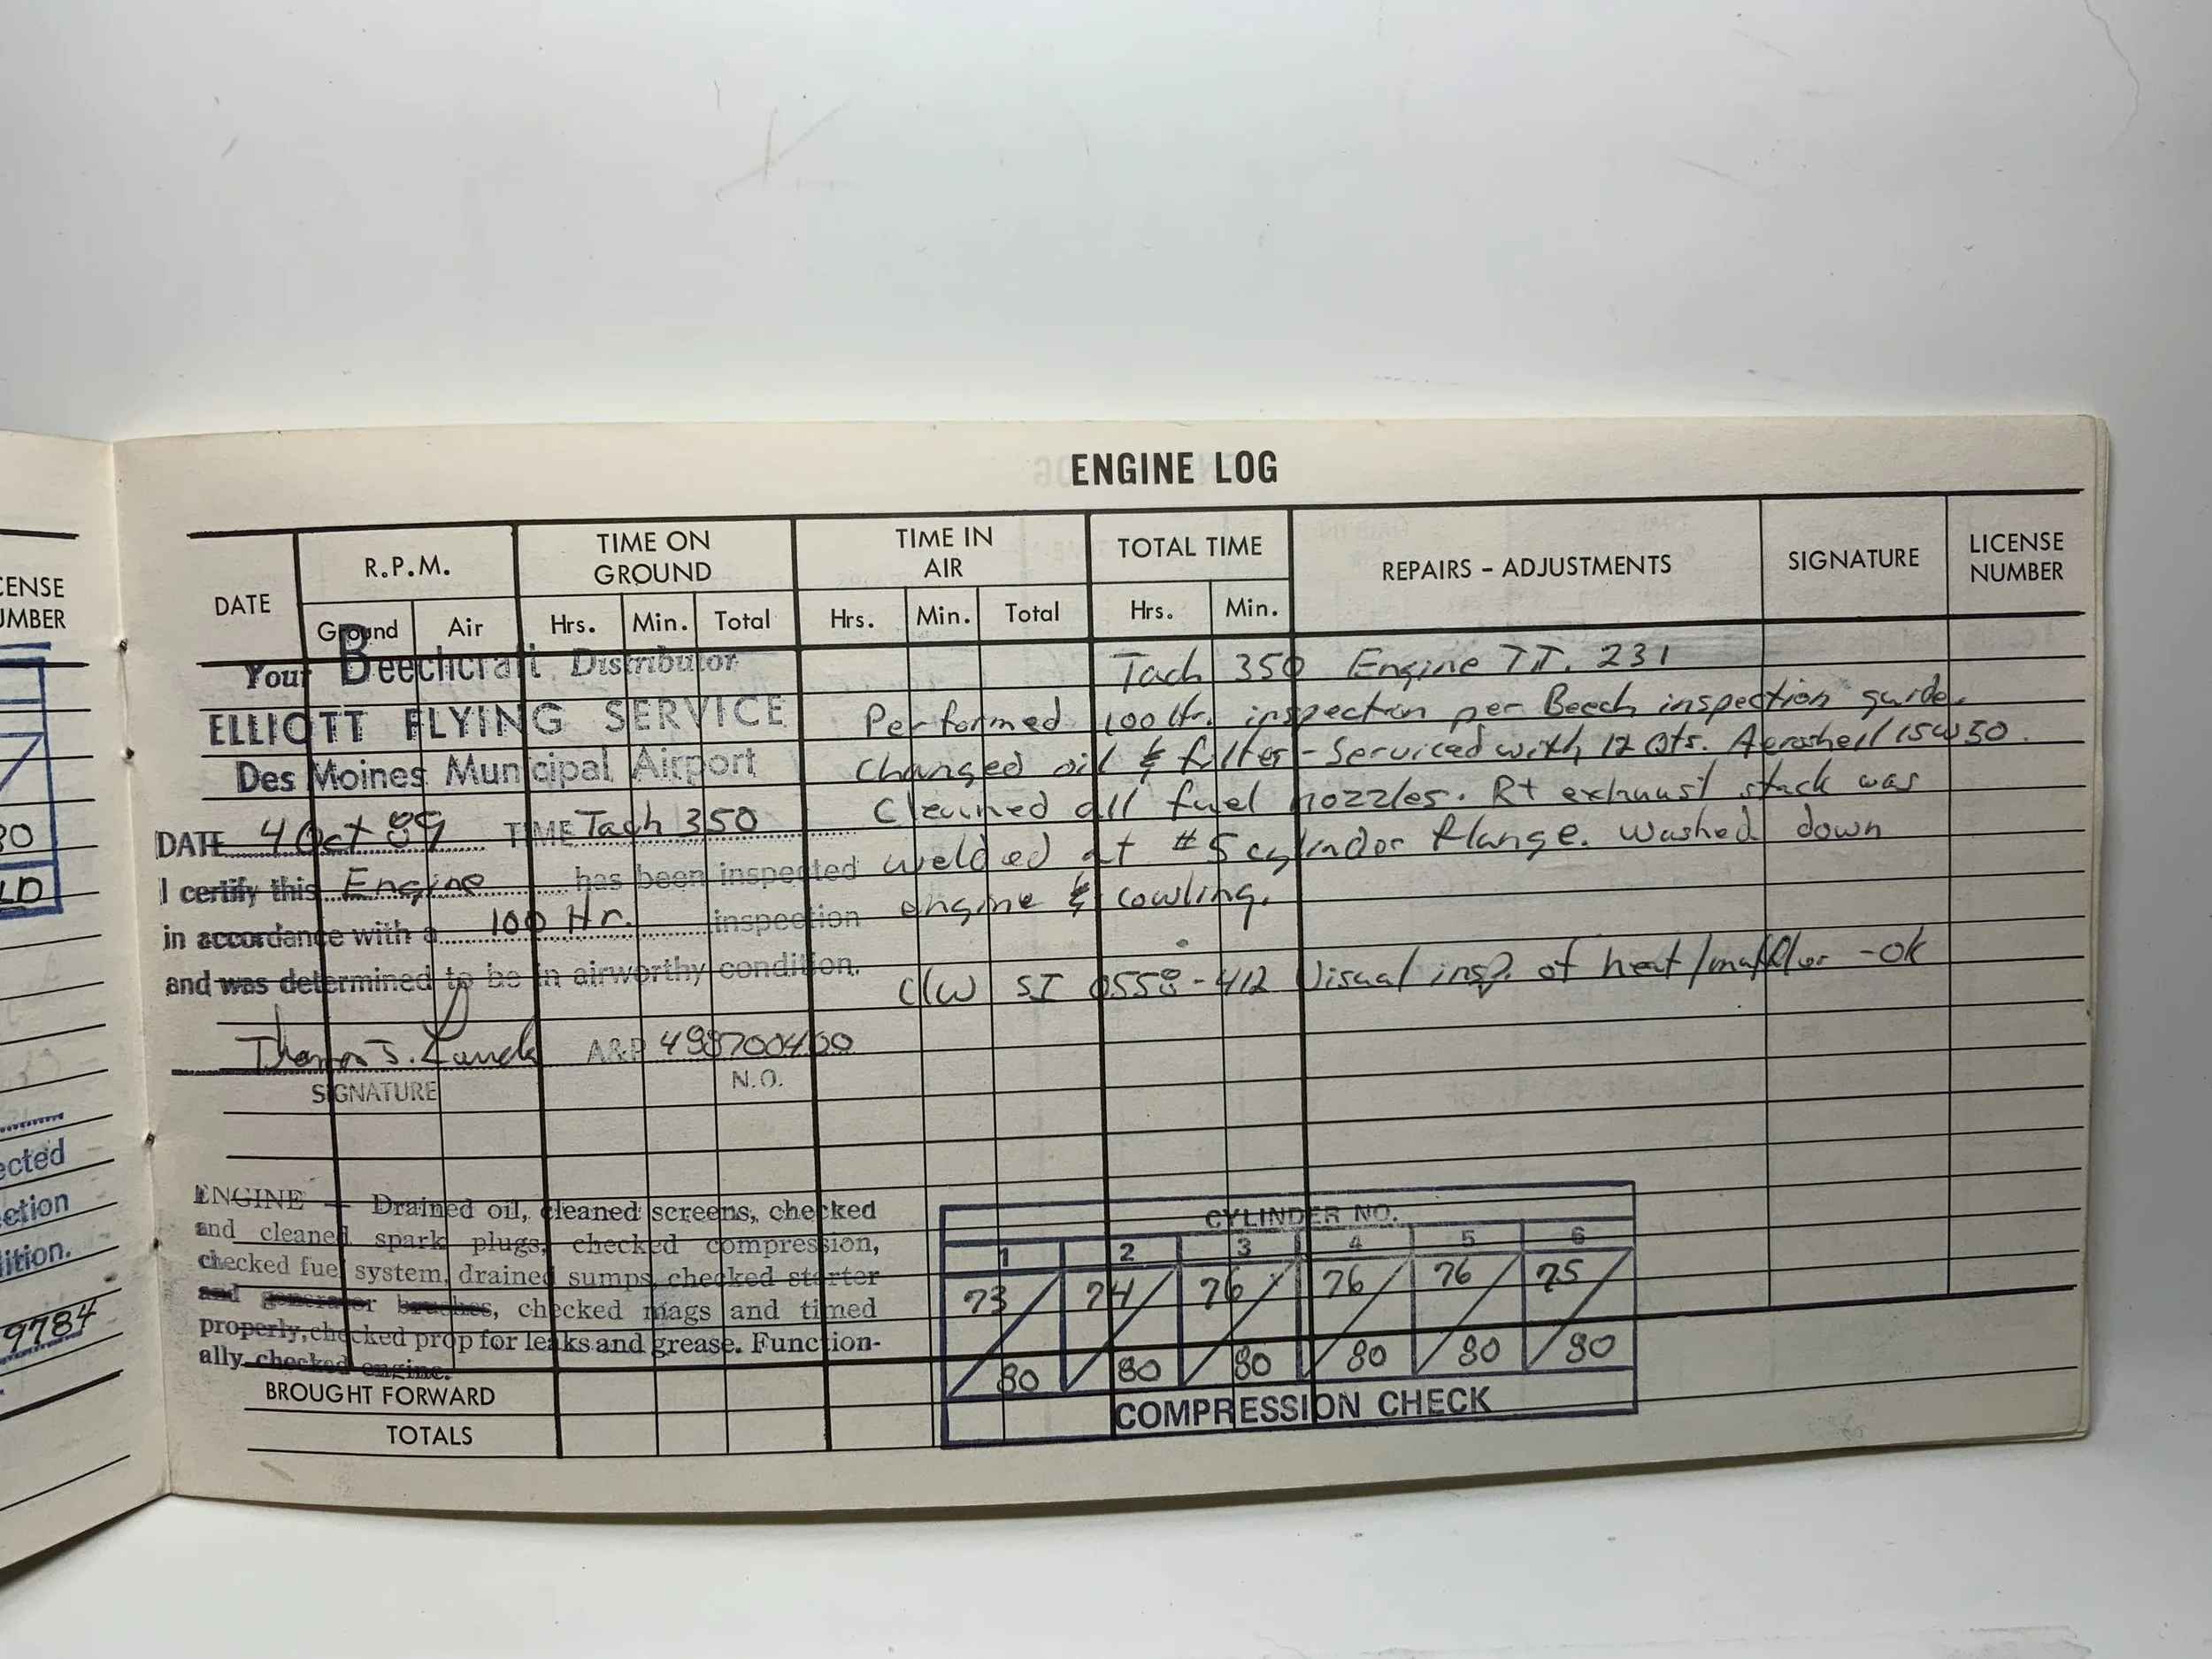 CENSE
UMBER
80
LD
ected
ection
dition.
9784
ENGINE LOG
DATE R.P.M. TIME ON GROUND TIME IN AIR TOTAL TIME REPAIRS - ADJUSTMENTS SIGNATURE LICENSE NUMBER
Ground Air Hrs. Min. Total Hrs. Min. Total Hrs. Min.
Your Beechcraft Distributor
ELLIOTT FLYING SERVICE
Des Moines Municipal Airport
DATE 4 Oct 89 TIME Tach 350
I certify this Engine has been inspected
in accordance with a 100 Hr. inspection
and was determined to be in airworthy condition.
Thomas J. A&P 498700400
SIGNATURE N.O.
Tach 350 Engine TT. 231
Performed 100 Hr. inspection per Beech inspection guide.
Changed oil & filter - Serviced with 12 Qts. Aeroshell 15W50.
Cleaned all fuel nozzles. Rt exhaust stack was
welded at #5 cylinder flange. Washed down
engine & cowling.
C/W SI 0558-412 Visual insp. of heat/muffler - ok
ENGINE — Drained oil, cleaned screens, checked
and cleaned spark plugs, checked compression,
checked fuel system, drained sumps, checked starter
and generator brushes, checked mags and timed
properly, checked prop for leaks and grease. Function-
ally checked engine.
BROUGHT FORWARD
TOTALS
CYLINDER NO.
1 2 3 4 5 6
73 74 76 76 76 75
80 80 80 80 80 80
COMPRESSION CHECK